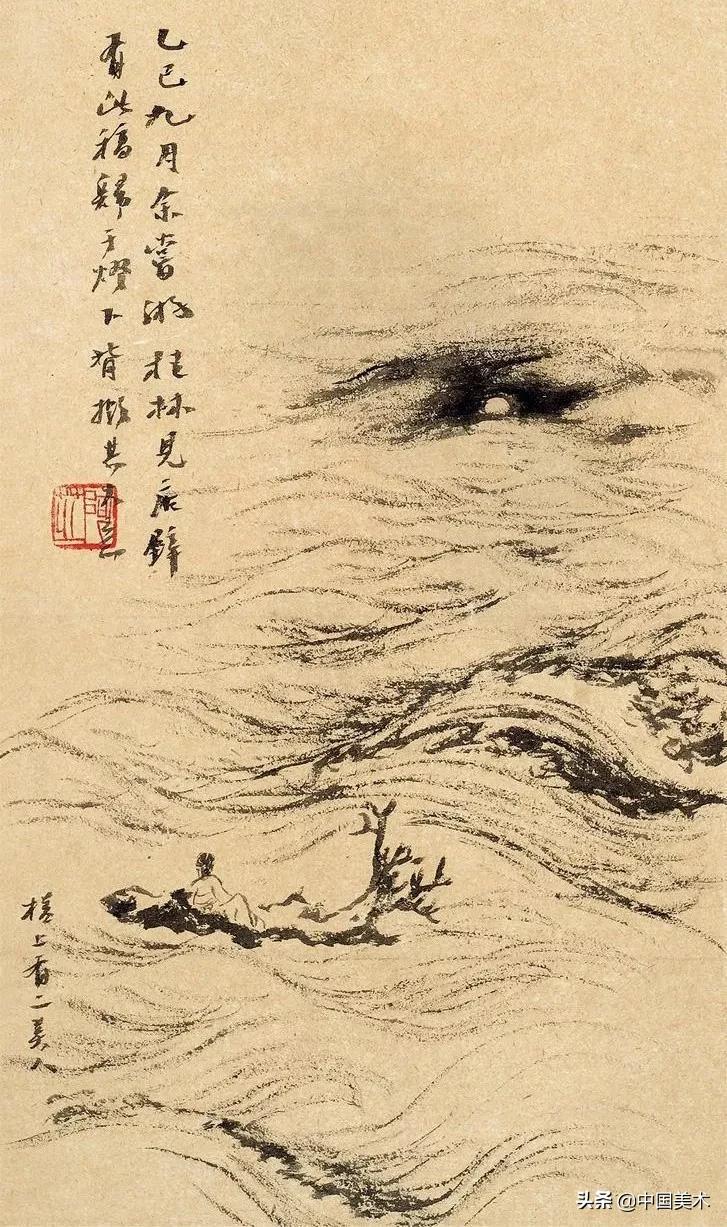 乙巳九月余嘗游桂林見店壁
有此稿歸于燈下背擬其大意
槎上有二美人
头条 @中国美术